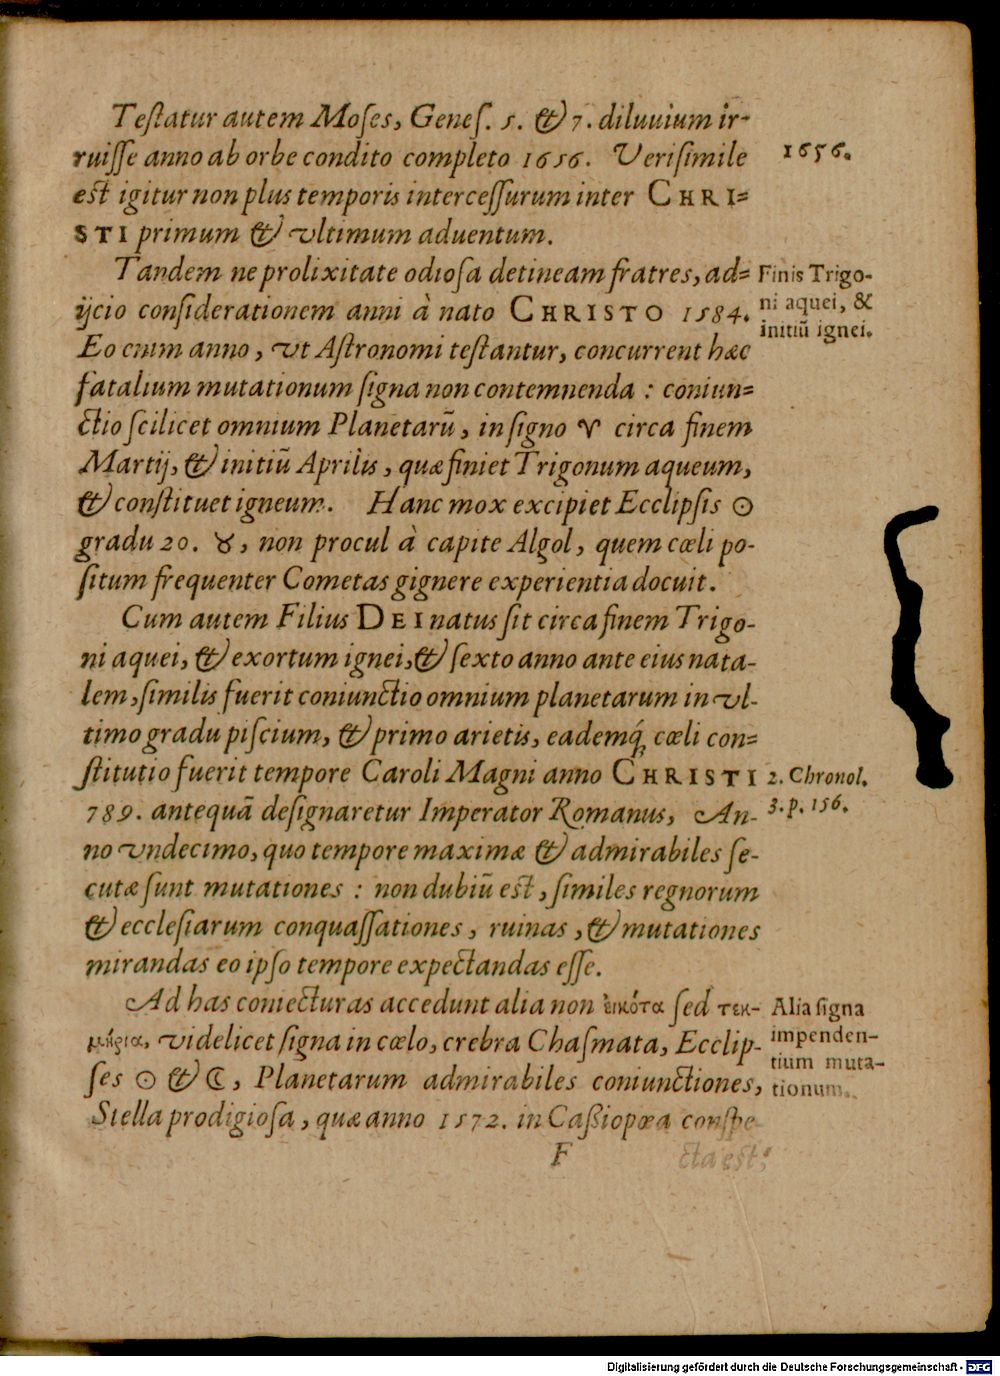 Teſtatur autem Moſes, Geneſ. 5. & 7. diluuium ir-
ruiſſe anno ab orbe condito completo 1656. Veriſimile
1656.
eſt igitur non plus temporis interceſſurum inter CHRI=
STI primum & vltimum aduentum.
Tandem ne prolixitate odioſa detineam fratres, ad=
ijcio conſiderationem anni à nato CHRISTO 1584.
Finis Trigo-
ni aquei, &
initiū ignei.
Eo enim anno, vt Aſtronomi teſtantur, concurrent hæc
fatalium mutationum ſigna non contemnenda : coniun=
ctio ſcilicet omnium Planetarū, in ſigno ♈ circa finem
Martij, & initiū Aprilis, quæ finiet Trigonum aqueum,
& conſtituet igneum. Hanc mox excipiet Ecclipſis ☉
gradu 20. ♉, non procul à capite Algol, quem cœli po-
ſitum frequenter Cometas gignere experientia docuit.
Cum autem Filius DEI natus ſit circa finem Trigo-
ni aquei, & exortum ignei, & ſexto anno ante eius nata-
lem, ſimilis fuerit coniunctio omnium planetarum in vl-
timo gradu piſcium, & primo arietis, eademq́; cœli con=
ſtitutio fuerit tempore Caroli Magni anno CHRISTI
2. Chronol.
3. p. 156.
789. antequā deſignaretur Imperator Romanus, An-
no vndecimo, quo tempore maximæ & admirabiles ſe-
cutæ ſunt mutationes : non dubiū eſt, ſimiles regnorum
& eccleſiarum conquaſſationes, ruinas, & mutationes
mirandas eo ipſo tempore expectandas eſſe.
Ad has coniecturas accedunt alia non ἐικότα ſed τεκ-
μήρια, videlicet ſigna in cœlo, crebra Chaſmata, Ecclip-
ſes ☉ & ☾, Planetarum admirabiles coniunctiones,
Stella prodigioſa, quæ anno 1572. in Caßiopœa conſpe-
Alia ſigna
impenden-
tium muta-
tionum.
F
cta eſt;
Digitalisierung gefördert durch die Deutsche Forschungsgemeinschaft - DFG